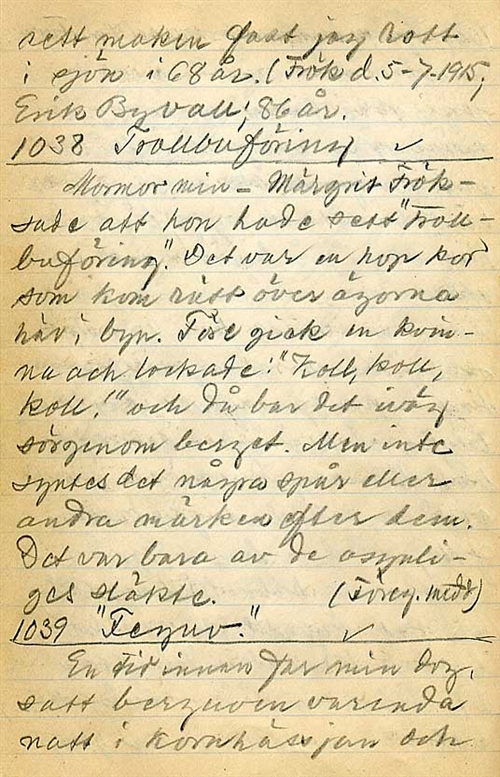 sett maken fast jag rott
i sjön i 68 år. (Frök d. 5-7-1915;
Erik Byvall, 86 år.
1038 Trollbuföring ✓
Mormor min - Märgrit Frök-
sade att hon hade sett "Troll-
buföring". Det var en hop kor
som kom rätt över ägorna
här i byn. Före gick en kvin-
na och lockade: "Koll, koll,
koll!" och då bar det iväg
sörgenom berget. Men inte
syntes det några spår eller
andra märken efter dem.
Det var bara av de osynli-
ges släkte. (Föreg. medd)
1039 "Feguv." ✓
En tid innan far min dog,
satt berguven varenda
natt i kornhässjan och